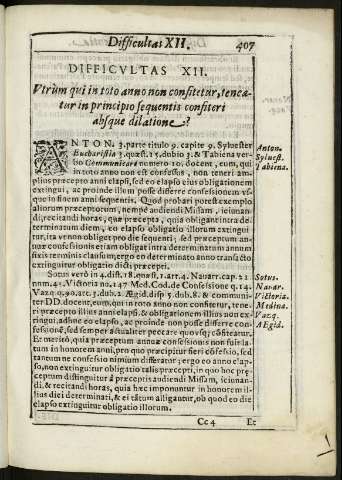 Difficultas XII. 407
DIFFICVLTAS XII.
Vtrùm qui in toto anno non confitetur, tenea-
tur in principio sequentis confiteri
absque dilatione?
ANTON. 3. parte titulo 9. capite 9. Syluester
Eucharistia 3. quæst. 15. dubio 3. & Tabiena ver-
bo Communicare numero 10. docent, eum, qui
in toto anno non est confessus, non teneri am-
plius præcepto anni elapsi, sed eo elapso eius obligationem
extingui, ac proinde illum posse differre confessionem vs-
que in finem anni sequentis. Quod probari potest exemplo
aliorum præceptorum, nempè audiendi Missam, ieiunan-
di, recitandi horas, quæ præcepta, quia obligant intra de-
terminatum diem, eo elapso obligatio illorum extingui-
tur, ita vt non obliget pro die sequenti; sed præceptum an-
nuæ confessionis etiam obligat intra determinatum annum
fixis terminis clausum, ergo eo determinato anno transacto
extinguitur obligatio dicti præcepti.
Sotus verò in 4. dist. 18. quæst. 1. art. 4. Nauar. cap. 21
num. 45. Victoria no. 147 Med. Cod. de Confessione q. 14.
Vazq. q. 90. art. 3. dub. 2. Ægid. disp 5. dub. 8. & communi-
ter DD. docent, eum, qui in toto anno non confitetur, tene-
ri præcepto illius anni elapsi, & obligationem illius non ex-
tingui adhuc eo elapso, ac proinde non posse differre con-
fessionē, sed semper actualiter peccare quousq; cōfiteatur.
Et meritò, quia præceptum annuæ confessionis non fuit la-
tum in honorem anni, pro quo præcipitur fieri cōfessio, sed
tantum ne confessio nimium differatur; ergo eo anno elap-
so, non extinguitur obligatio talis præcepti, in quo hoc præ-
ceptum distinguitur à præceptis audiendi Missam, ieiunan-
di, & recitandi horas, quia hæc imponuntur in honorem il-
lius diei determinati, & ei tātum alligantur, ob quod eo die
elapso extinguitur obligatio illorum.
Anton.
Syluest.
Tabiena.
Sotus.
Nauar.
Victoria.
Medina.
Vazq.
Ægid.
Cc 4 Et